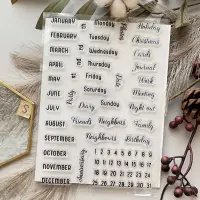 JANUARY Monday Friends Holiday
FEBRUARY Tuesday Christmas
MARCH Wednesday Cards
APRIL Thursday Journal
MAY Friday Date Work
JUNE Saturday Meeting
JULY Party Diary Sunday Night out
AUGUST Friends Family
SEPTEMBER Neighbours Birthday
OCTOBER Anniversary 1 2 3 4 5 6 7 8
NOVEMBER 9 10 11 12 13 14 15 16
17 18 19 20 21 22 23 24
DECEMBER 25 26 27 28 29 30 31